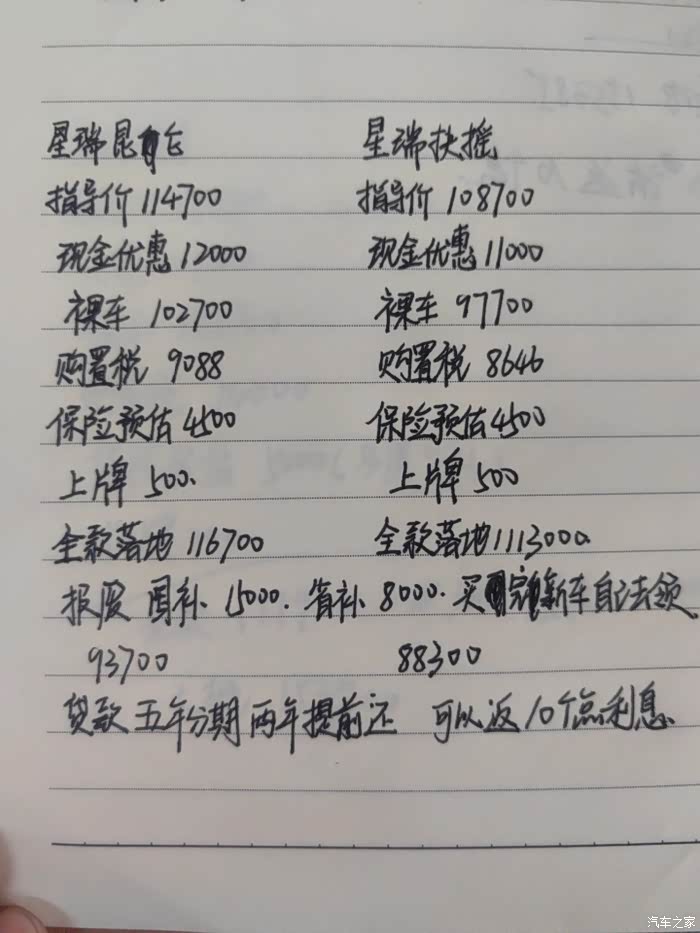 星瑞昆仑 星瑞扶摇
指导价 114700 指导价 108700
现金优惠 12000 现金优惠 11000
裸车 102700 裸车 97700
购置税 9088 购置税 8646
保险预估 4500 保险预估 4500
上牌 500. 上牌 500
全款落地 116700 全款落地 1113000
报废 国补 15000. 省补 8000. 买完新车自己去领
93700 88300
贷款 五年分期 两年提前还 可以返 10个点利息
汽车之家